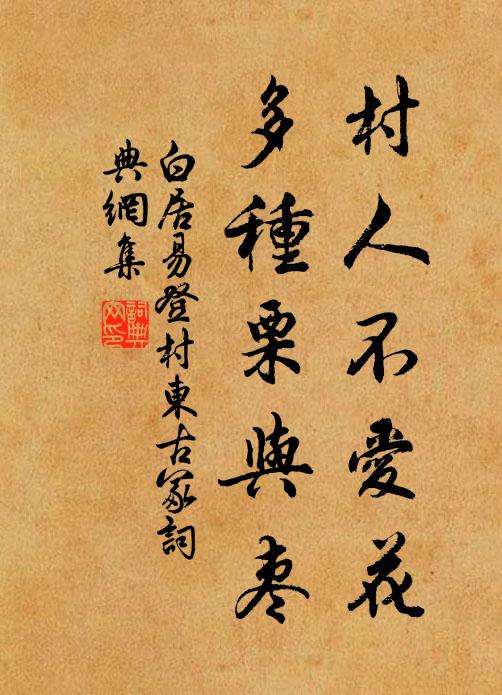 村人不愛花
多種栗與枣
白居易登村東古冢詞
典網集
詞典网印